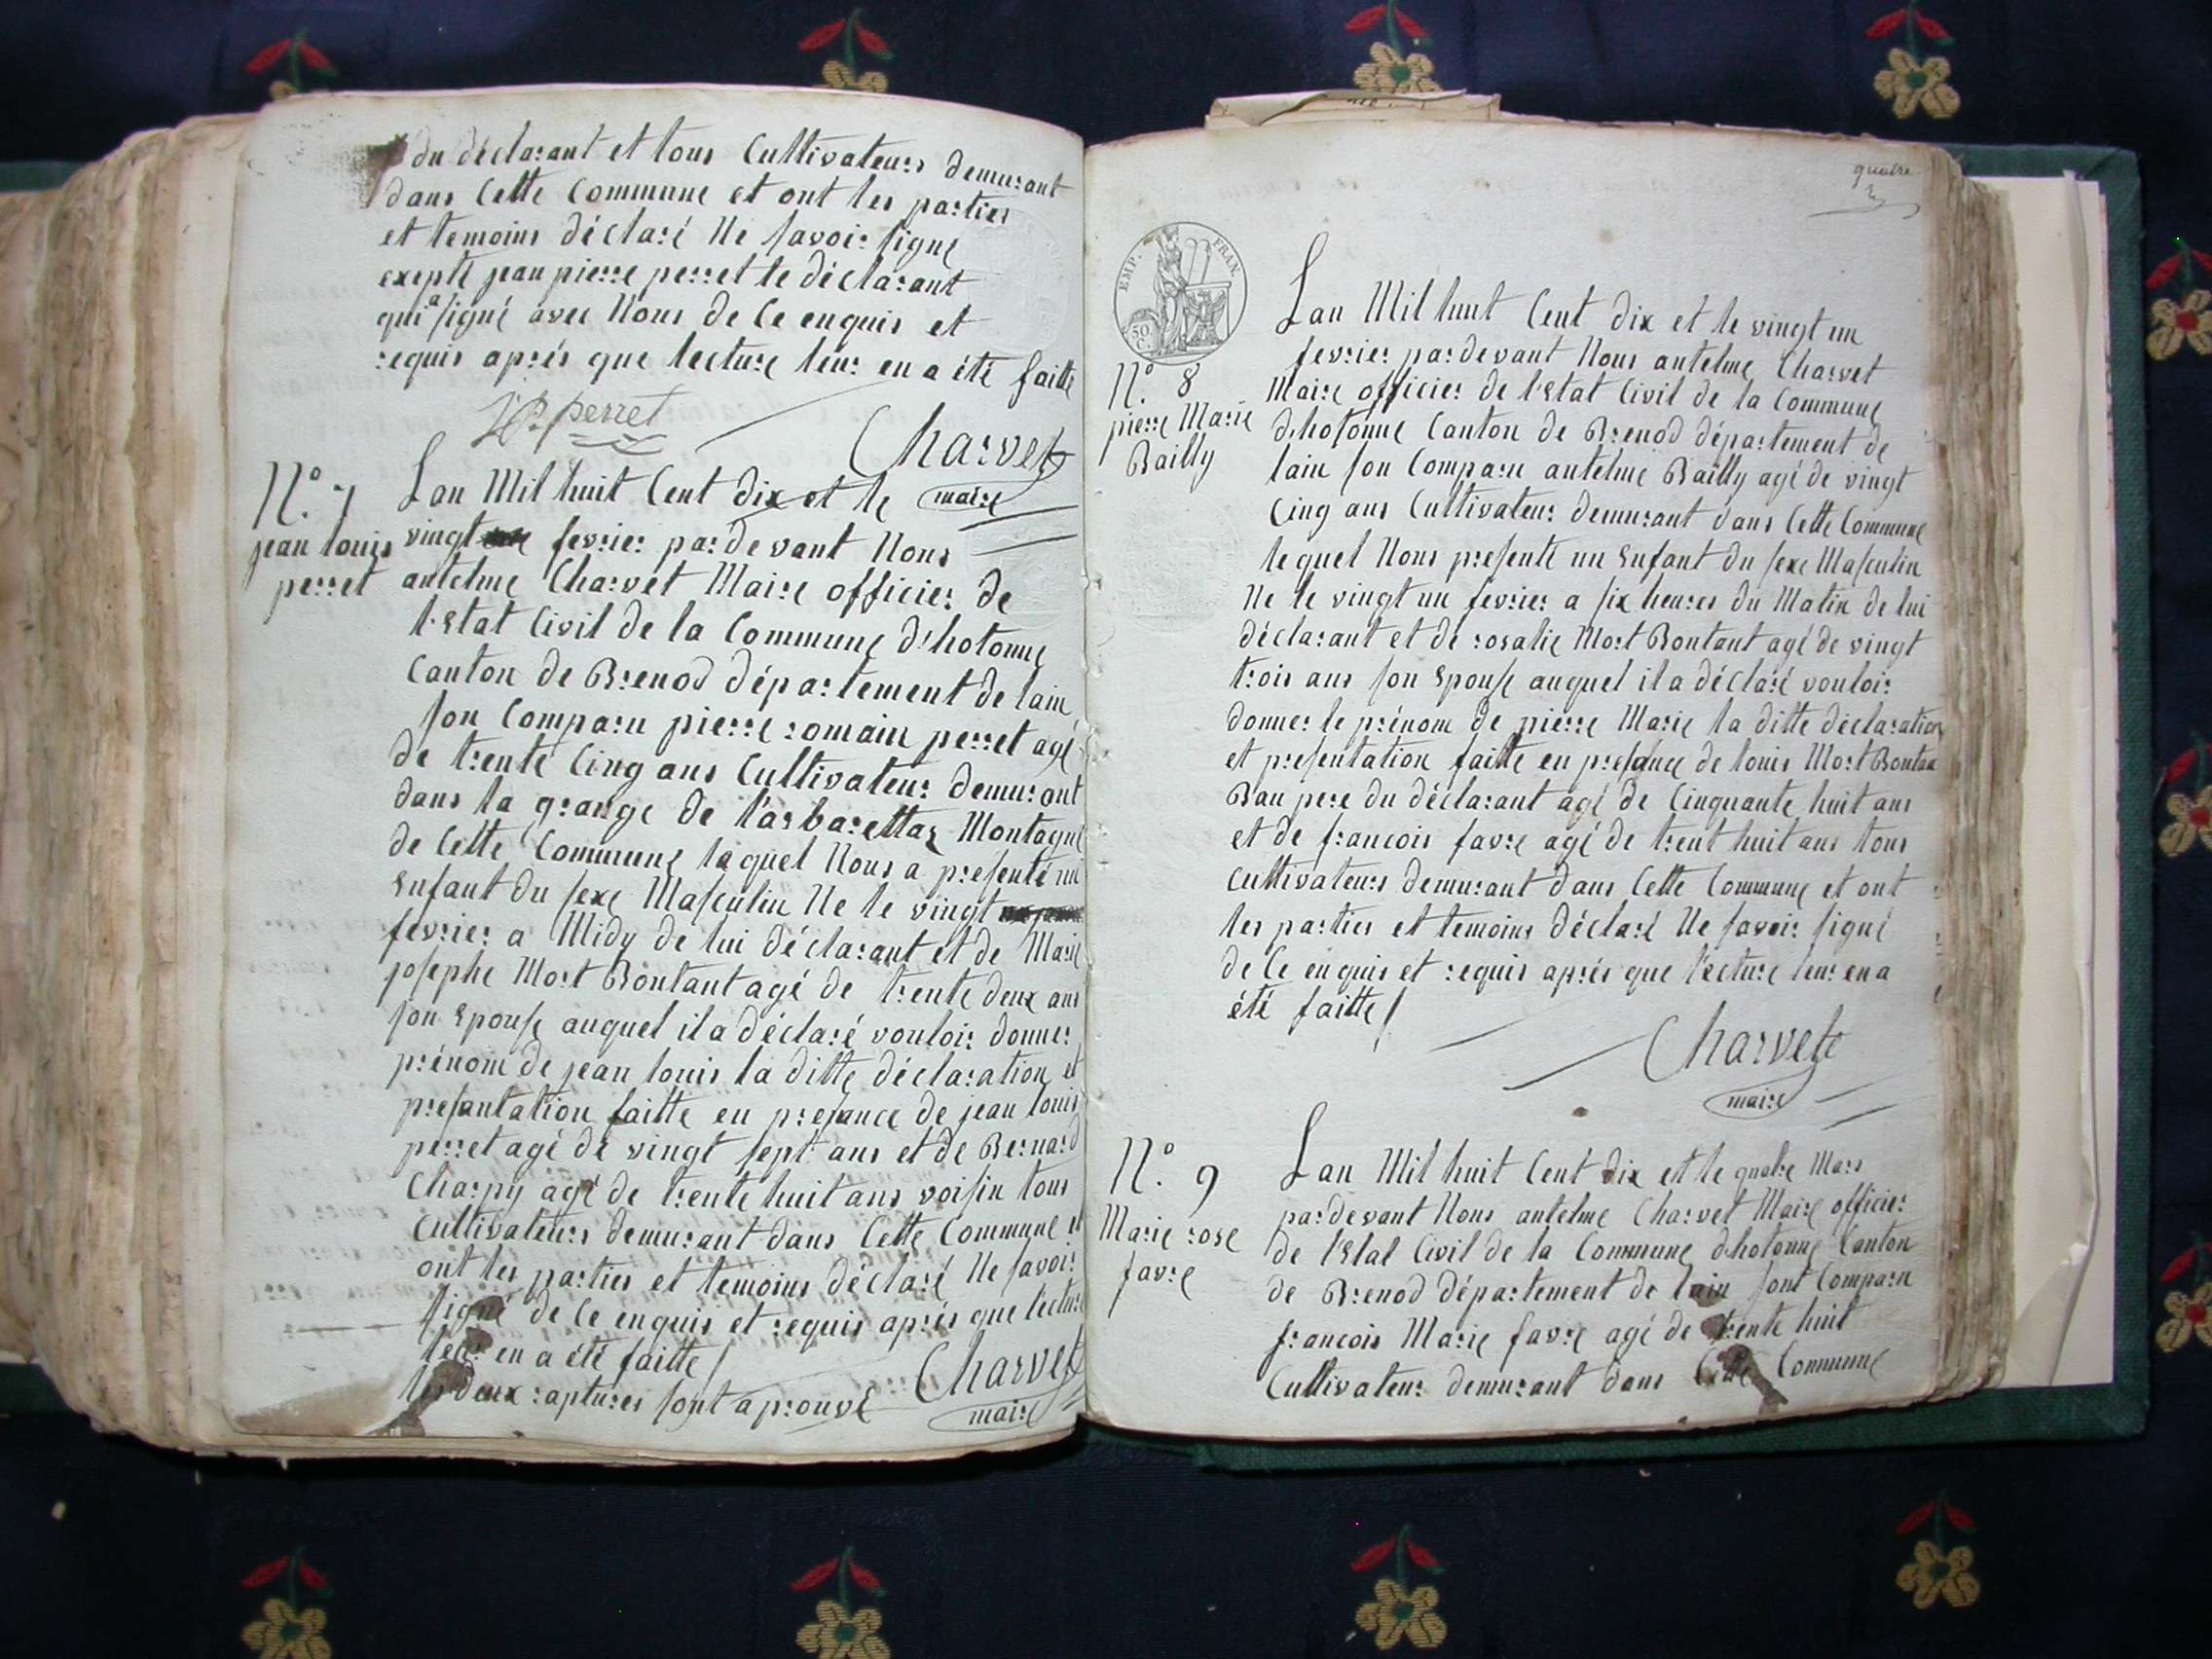 du déclarant et tous Cultivateurs demurant
dans Cette Commune et ont les parties
et temoins déclaré Ne savoir signé
exepté jean pierre perret le déclarant
qui a signé avec Nous de Ce enquis et
requis aprés que lecture leur en a été faitte
JP perret
Charvet
maire
N.° 7
jean louis
perret
Lan Mil huit Cent dix et le
vingt fevrier pardevant Nous
antelme Charvet Maire officier de
l'Etat Civil de la Commune d'hotonne
Canton de Brenod département de lain
son Comparu pierre romain perret agé
de trente Cinq ans Cultivateur demurant
dans la grange de l'arbarettaz Montagne
de Cette Commune laquel Nous a presenté un
Enfant du sexe Masculin Ne le vingt
fevrier a Midy de lui déclarant et de Marie
josephe Mort Bontant agé de trente deux ans
son Epouse auquel il a déclaré vouloir donner
prénom de jean louis la ditte déclaration et
presantation faitte en presance de jean louis
perret agé de vingt sept ans et de Bernard
Charpy agé de trente huit ans voisin tous
Cultivateurs demurant dans Cette Commune et
ont les parties et temoins déclaré Ne savoir
signé de Ce enquis et requis aprés que lecture
leur en a été faitte /
les deux raptures sont aprouvé
Charvet
maire
quatre
EMP. FRAN.
50 C.
N.° 8
pierre Marie
Bailly
Lan Mil huit Cent dix et le vingt un
fevrier pardevant Nous antelme Charvet
Maire officier de l'Etat Civil de la Commune
d'hotonne Canton de Brenod département de
lain son Comparu antelme Bailly agé de vingt
Cinq ans Cultivateur demurant dans Cette Commune
lequel Nous presenté un Enfant du sexe Masculin
Ne le vingt un fevrier a six heures du Matin de lui
déclarant et de rosalie Mort Bontant agé de vingt
trois ans son Epouse auquel il a déclaré vouloir
donner le prénom de pierre Marie la ditte déclaration
et presentation faitte en presance de louis Mort Bontan
Bau pere du déclarant agé de Cinquante huit ans
et de francois favre agé de trent huit ans tous
Cultivateurs demurant dans Cette Commune et ont
les parties et temoins déclaré Ne savoir signé
de Ce enquis et requis aprés que lécture leur en a
été faitte /
Charvet
maire
N.° 9
Marie rose
favre
Lan Mil huit Cent dix et le quatre Mars
pardevant Nous antelme Charvet Maire officier
de l'Etat Civil de la Commune d'hotonne Canton
de Brenod département de lain sont Comparu
francois Marie favre agé de trente huit
Cultivateur demurant dans Cette Commune